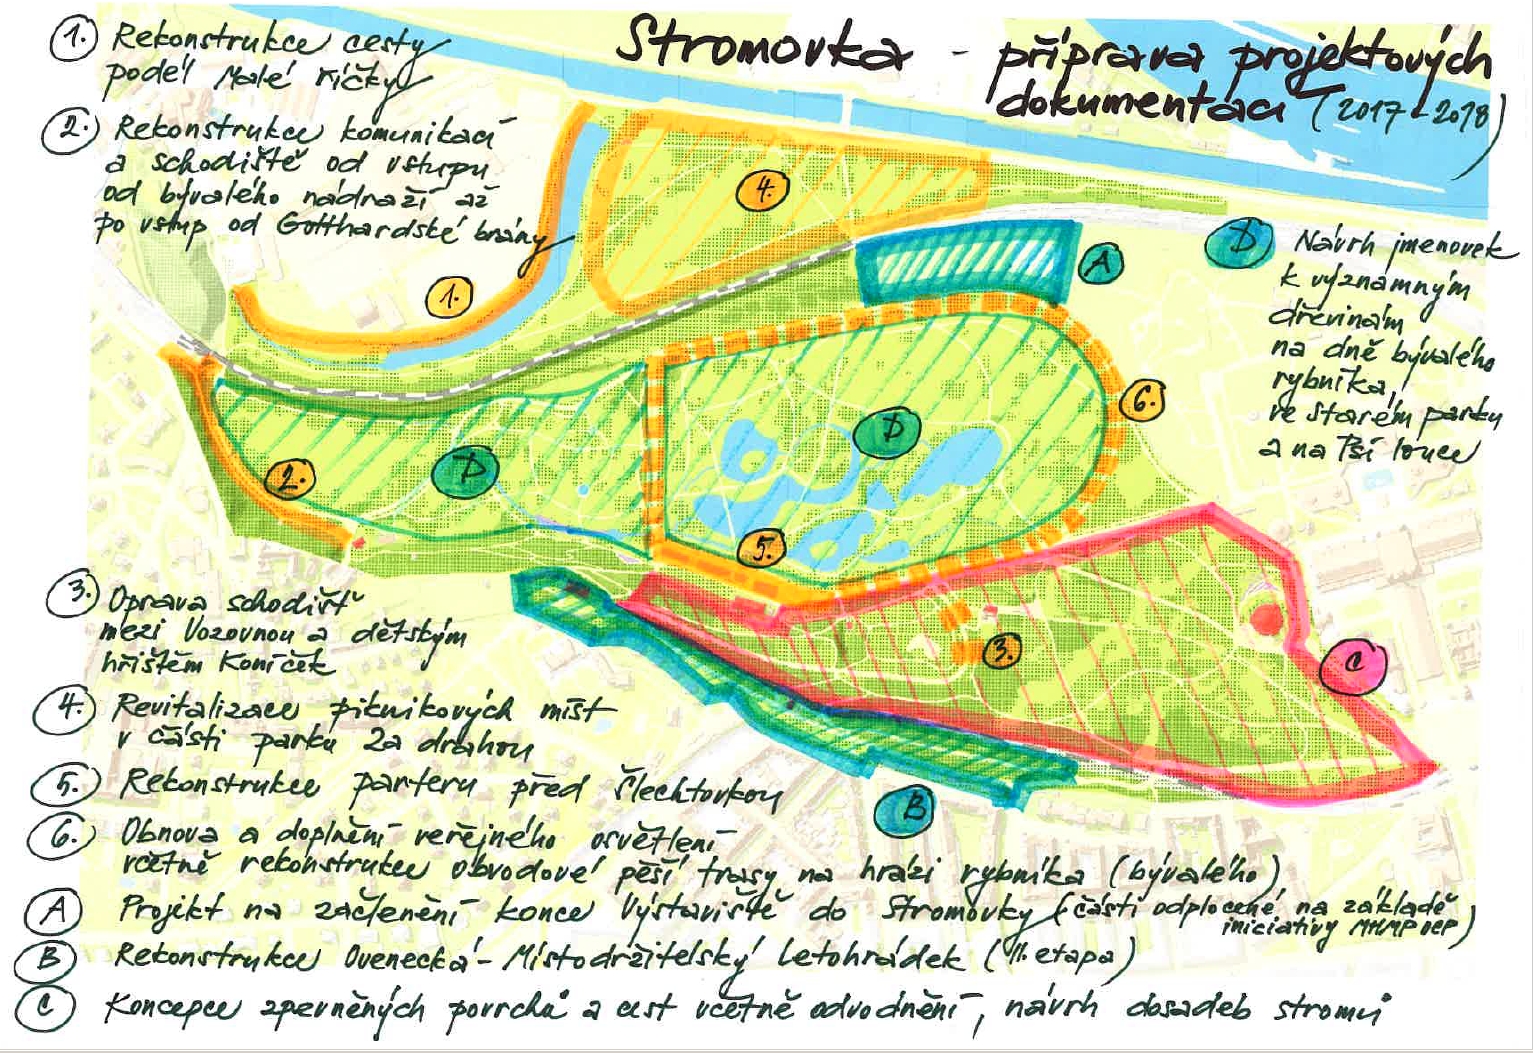 Stromovka - příprava projektových
dokumentací (2017-2018)
1. Rekonstrukce cesty
podél Malé říčky
2. Rekonstrukce komunikací
a schodiště od vstupu
od bývalého nádraží až
po vstup od Gotthardské brány
4.
1.
A
D
Návrh jmenovek
k významným
dřevinám
na dně bývalého
rybníka,
ve starém parku
a na Psí louce
6.
D
D
2.
5.
3.
C
B
3. Oprava schodišť
mezi Vozovnou a dětským
hřištěm Koníček
4. Revitalizace piknikových míst
v části parku za drahou
5. Rekonstrukce parteru před Šlechtovkou
6. Obnova a doplnění veřejného osvětlení
včetně rekonstrukce obvodové pěší trasy na hrázi rybníka (bývalého)
A Projekt na začlenění konce Výstaviště do Stromovky (části odplocené na základě
iniciativy MHMP OCP)
B Rekonstrukce Ovenecká - Místodržitelský letohrádek (II. etapa)
C Koncepce zpevněných povrchů a cest včetně odvodnění, návrh dosadeb stromů